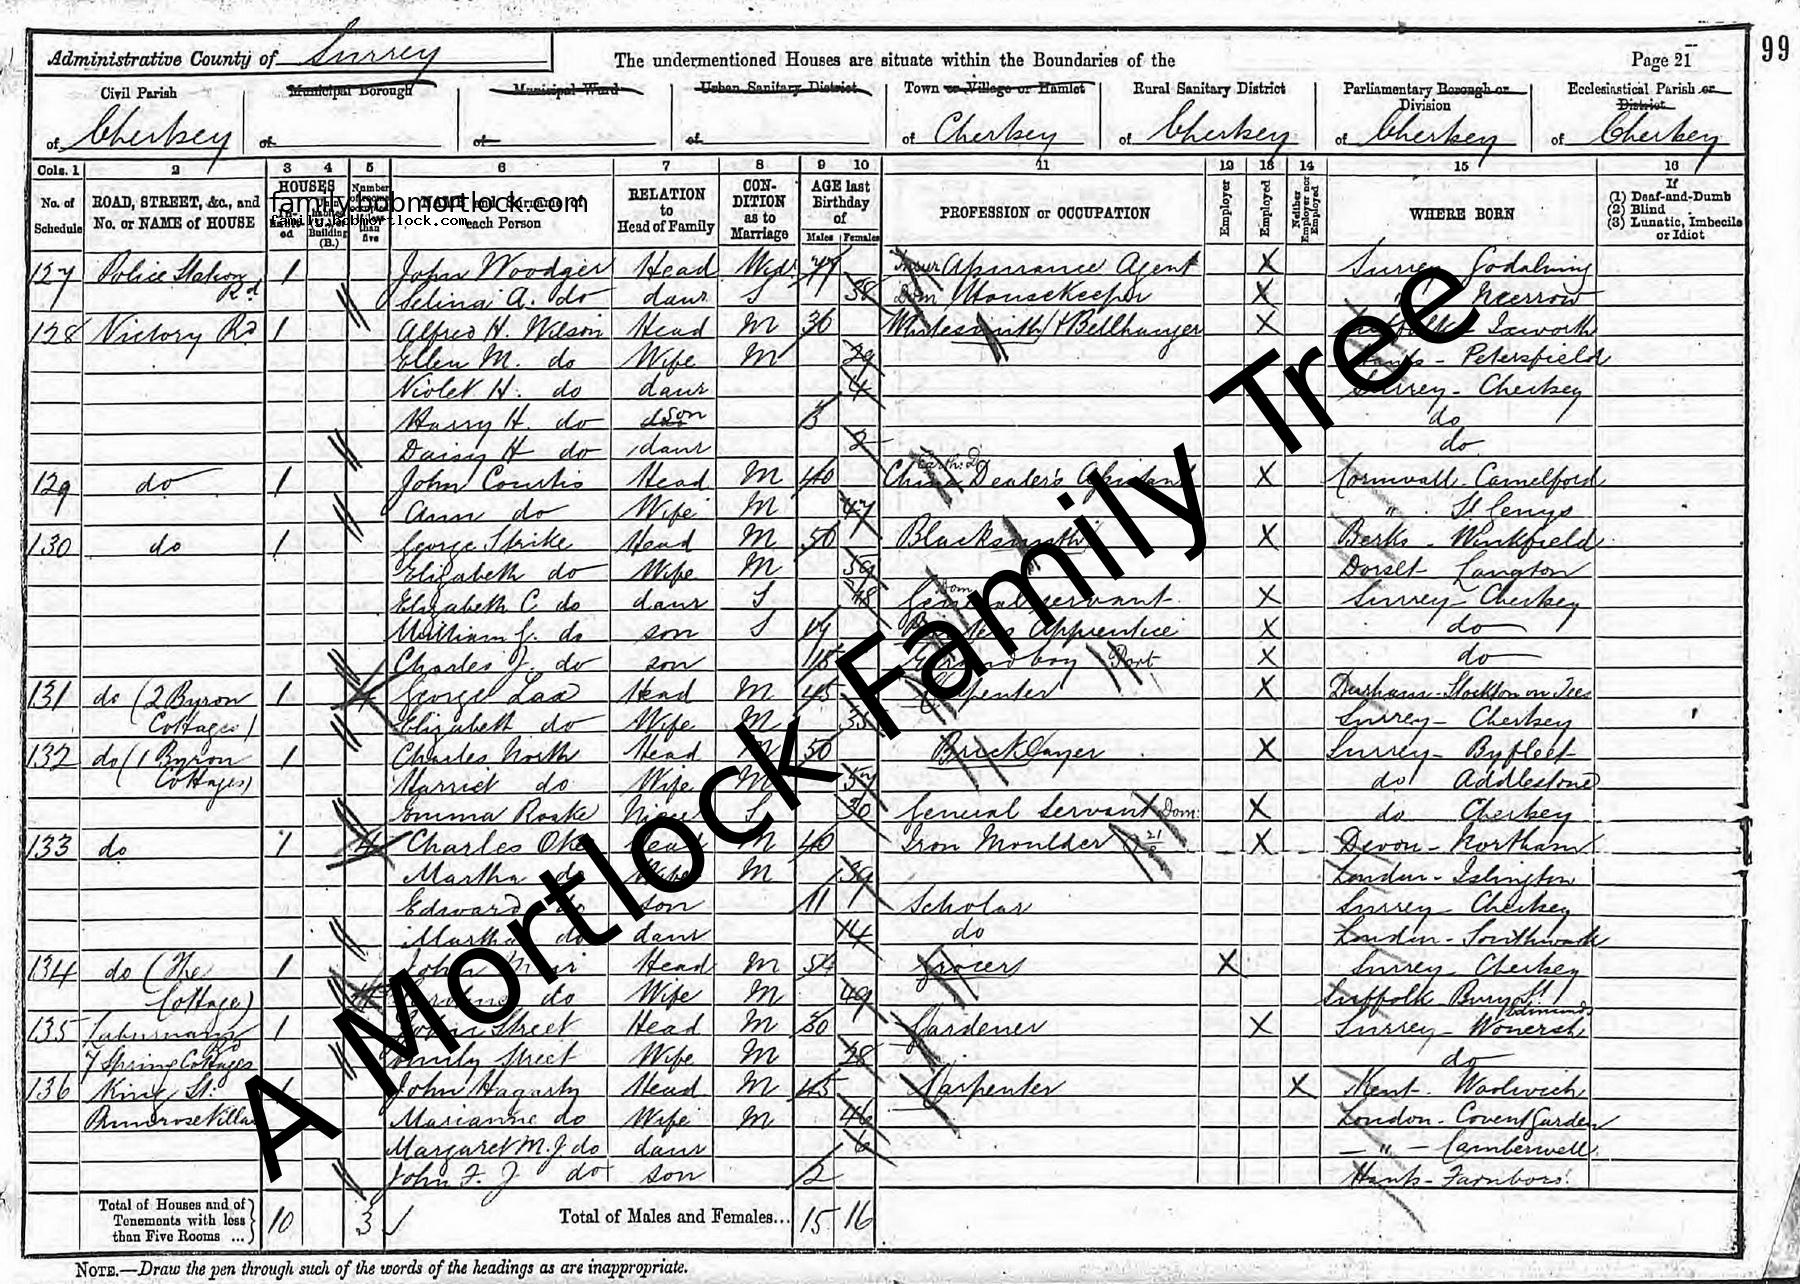 Administrative County of Surrey
The undermentioned Houses are situate within the Boundaries of the
Page 21
99
Civil Parish
of Chertsey
Municipal Borough
of
Municipal Ward
of
Urban Sanitary District
of
Town or Village or Hamlet
of Chertsey
Rural Sanitary District
of Chertsey
Parliamentary Borough or Division
of Chertsey
Ecclesiastical Parish or District
of Chertsey
Cols. 1 2 3 4 5 6 7 8 9 10 11 12 13 14 15 16
No. of Schedule
ROAD, STREET, &c., and No. or NAME of HOUSE
HOUSES
NAME and Surname of each Person
RELATION to Head of Family
CONDITION as to Marriage
AGE last Birthday of
Males Females
PROFESSION or OCCUPATION
Employer
Employed
Neither Employer nor Employed
WHERE BORN
If
(1) Deaf-and-Dumb
(2) Blind
(3) Lunatic, Imbecile or Idiot
family.bobmortlock.com
family.bobmortlock.com
127 Police Station Rd 1 John Woodger Head Widr 77 Assurance Agent X Surrey Godalming
Selina A. do daur S 38 Housekeeper X " Merrow
128 Victory Rd 1 Alfred H. Wilson Head M 36 Whitesmith & Bellhanger X Suffolk - Ixworth
Ellen M. do Wife M 29 Hants - Petersfield
Violet H. do daur 4 Surrey - Chertsey
Harry H. do son 3 do
Daisy H do daur 2 do
129 do 1 John Courtis Head M 40 China Dealer's Assistant X Cornwall - Camelford
Ann do Wife M 47 "
130 do 1 George Strike Head M 50 Blacksmith X Berks - Winkfield
Elizabeth do Wife M 59 Dorset Langton
Elizabeth C do daur S 18 General servant X Surrey - Chertsey
William J. do son S 17 Apprentice X do
Charles J. do son 15 Errand boy X do
131 do (2 Byron Cottages) 1 4 George Lax Head M 45 Carpenter X Durham - Stockton on Tees
Elizabeth do Wife M 35 Surrey - Chertsey
132 do (1 Byron Cottages) 1 Charles North Head M 50 Bricklayer X Surrey - Byfleet
Harriet do Wife M 57 do Addlestone
Emma Roake Niece S 30 General Servant Dom: X do Chertsey
133 do 1 4 Charles Oke Head M 40 Iron Moulder X Devon - Northam
Martha do Wife M 39 London - Islington
Edward do son 11 Scholar Surrey - Chertsey
Martha do daur 14 do London - Southwark
134 do (The Cottage) 1 John Head M 54 Grocer X Surrey - Chertsey
Caroline do Wife M 49 Suffolk Bury St. Edmunds
135 Laburnam Rd 7 Spring Cottages 1 John Street Head M 30 Gardener X Surrey - Wonersh
Emily Street Wife M 28 do
136 King St. Primrose Villa 1 John Hagarty Head M 45 Carpenter X Kent - Woolwich
Marianne do Wife M 46 London - Covent Garden
Margaret M. J. do daur 6 - " - Camberwell
John F. J do son 2 Hants - Farnboro'
Total of Houses and of Tenements with less than Five Rooms ... 10 3
Total of Males and Females... 15 16
NOTE.—Draw the pen through such of the words of the headings as are inappropriate.
A Mortlock Family Tree